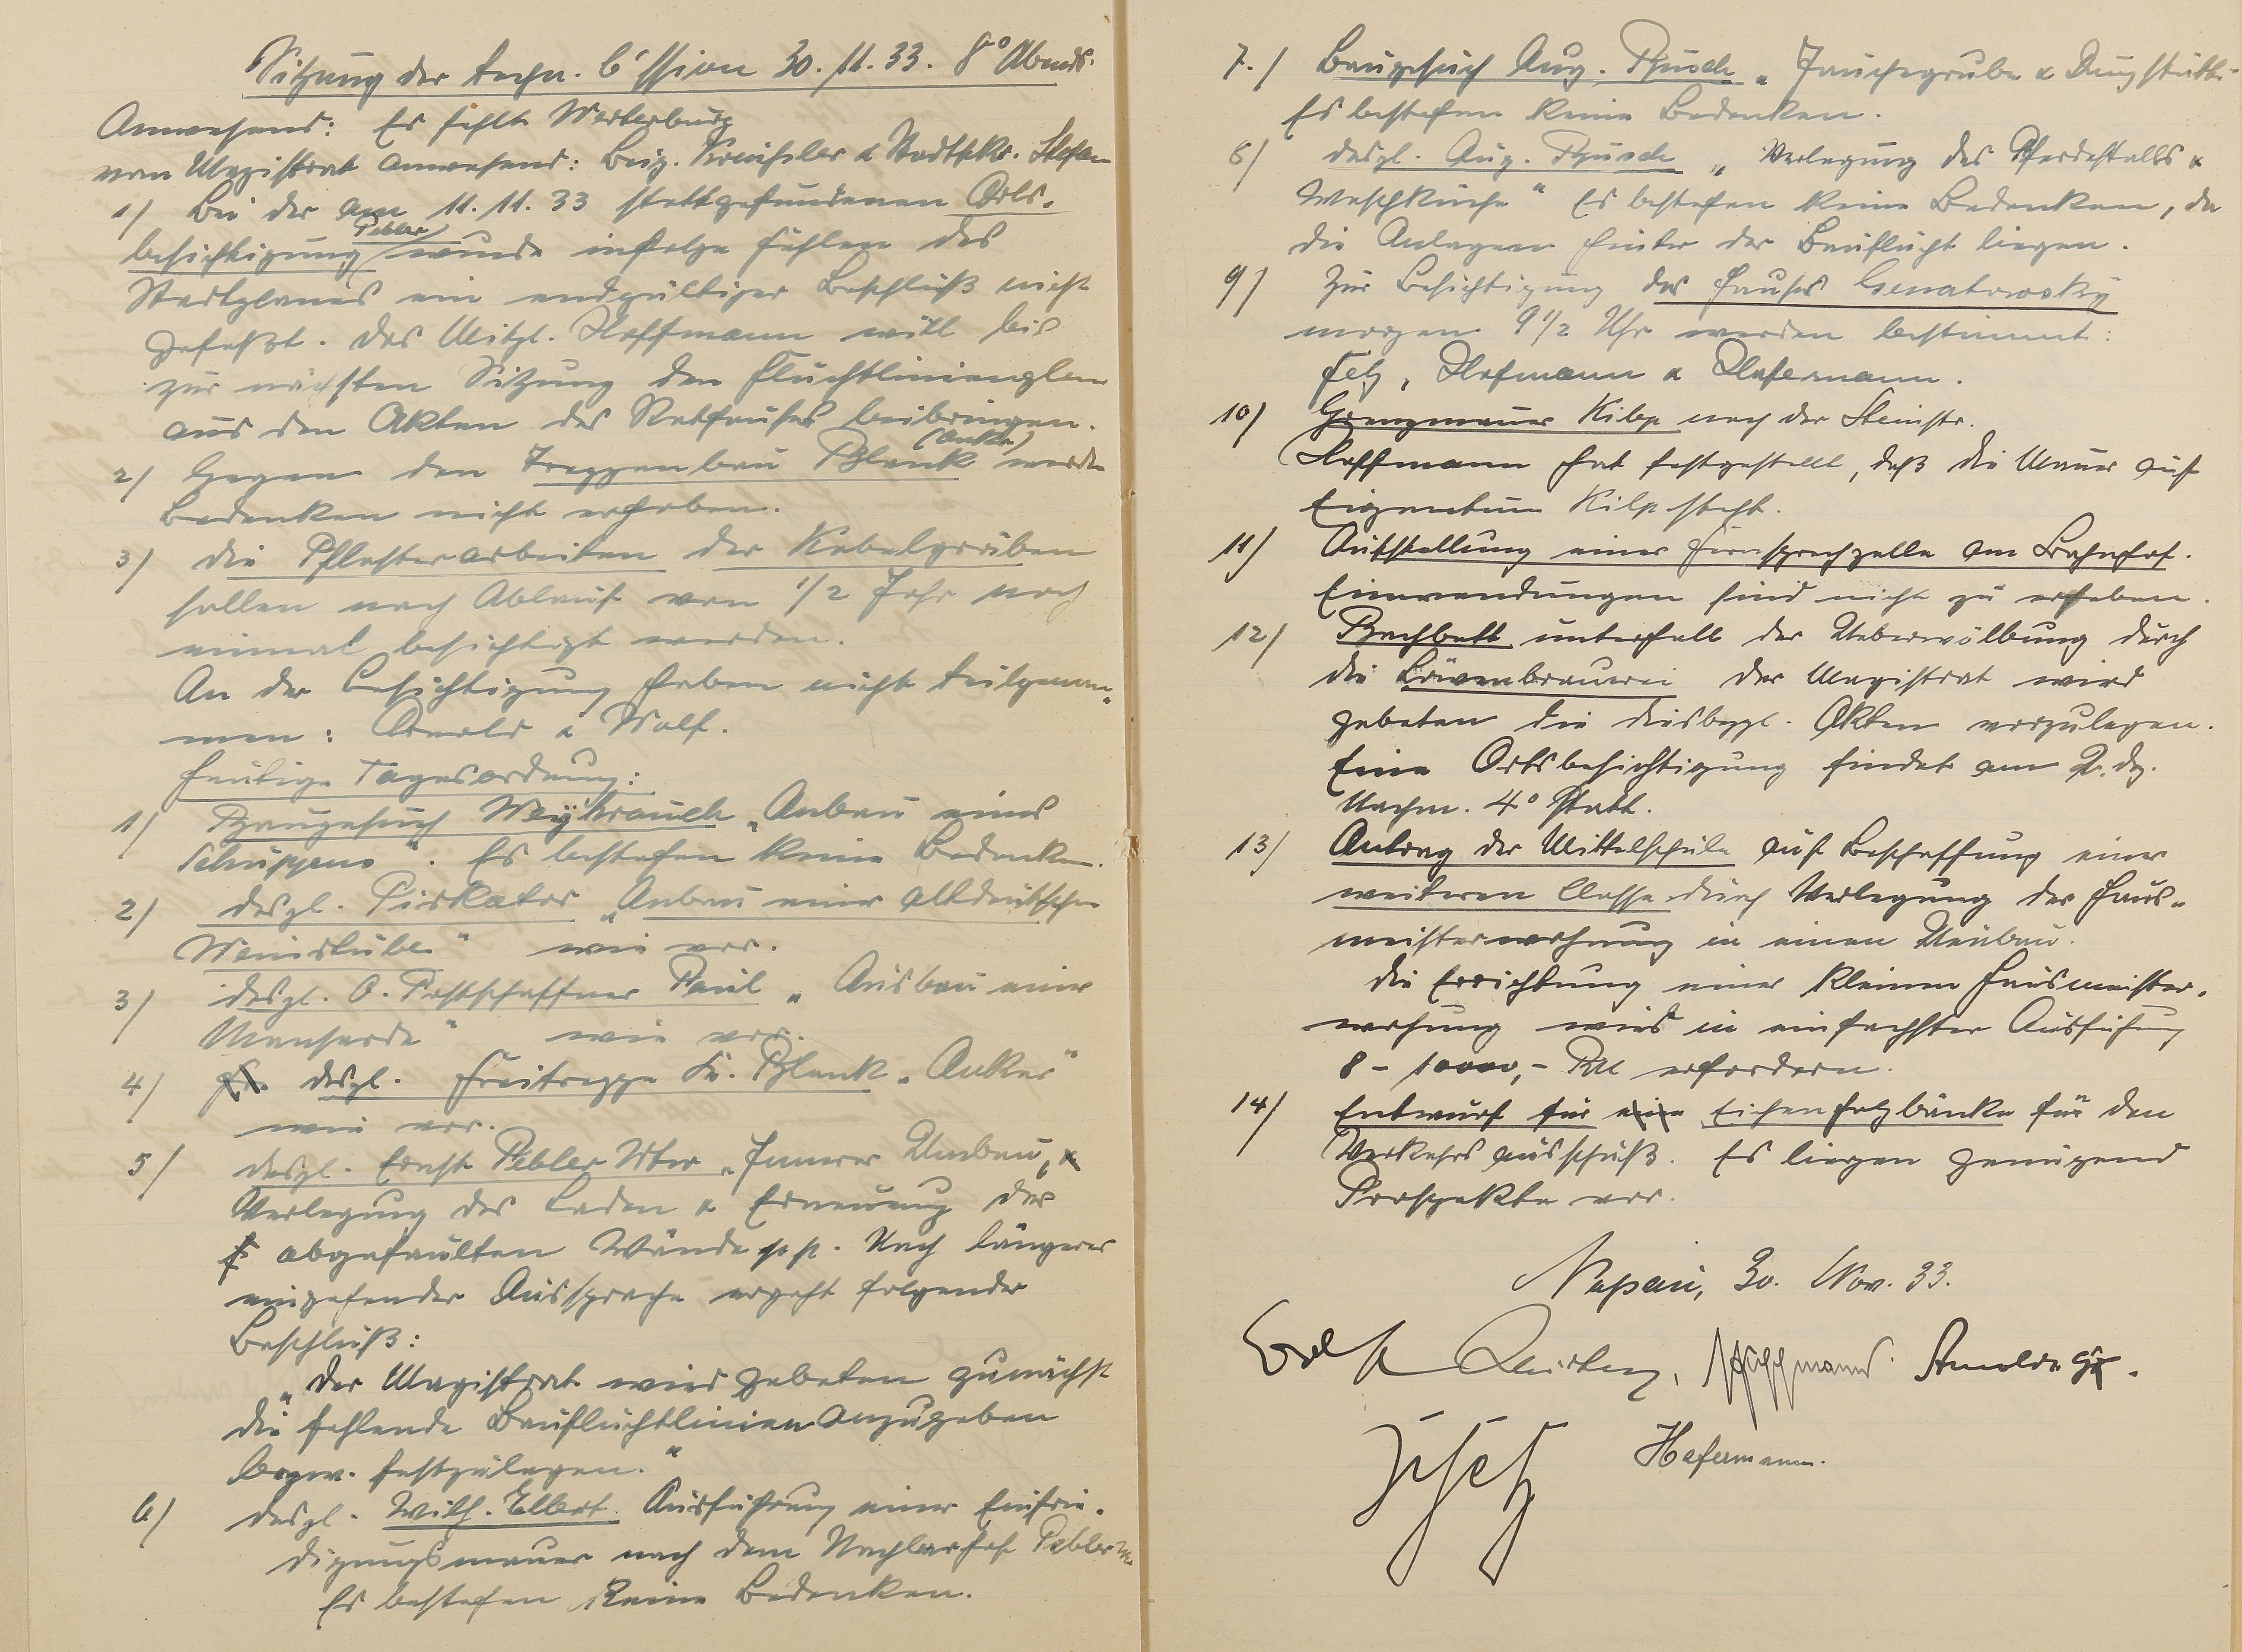 Sitzung der techn. C'ssion 30./11.33. 8° Abends.
Anwesend: Es fehlt Westerburg
vom Magistrat anwesend: Beig. Kreussler & Stadtsekr. Stefan
1) Bei der am 11.11.33 stattgefundenen Orts-
besichtigung Pebler wurde infolge Fehlen des
Stadtplanes ein endgültiger Beschluß nicht
gefaßt. Das Mitgl. Hoffmann will bis
zur nächsten Sitzung den Fluchtlinienplan
aus den Akten des Rathauses beibringen.
2) Gegen den Treppenbau Blank (Anker) werden
Bedenken nicht erhoben.
3) Die Pflasterarbeiten der Kabelgräben
sollen nach Ablauf von 1/2 Jahr noch
einmal besichtigt werden.
An der Besichtigung haben nicht teilgenom-
men: Arnold & Wolf.
Heutige Tagesordnung:
1) Baugesuch Weyhrauch „Anbau eines
Schuppens". Es bestehen keine Bedenken.
2) desgl. Piskator „Anbau einer altdeutschen
Weinstube" wie vor.
3) desgl. O. Postschaffner Paul „Ausbau einer
Mansarde" wie vor.
4) desgl. Freitreppe Blank „Anker"
wie vor.
5) desgl. Ernst Pebler Wtw „Innerer Umbau,
Verlegung des Laden & Erneuerung der
abgefaulten Wände pp. Nach längerer
eingehender Aussprache ergeht folgender
Beschluß:
„Der Magistrat wird gebeten zunächst
die fehlende Baufluchtlinien anzugeben
bezw. festzulegen."
6) desgl. Wilh. Ellert. Ausführung einer Einfrie-
digungsmauer nach dem Nachbarhof Pebler
Es bestehen keine Bedenken.
7./ Baugesuch Aug. Busch „Jauchegrube & Dungstätte"
Es bestehen keine Bedenken.
8) desgl. Aug. Busch „Verlegung des Pferdestalls &
Waschküche" Es bestehen keine Bedenken, da
die Anlagen hinter der Bauflucht liegen.
9) Zur Besichtigung des Hauses Genatowsky
morgen 9 1/2 Uhr werden bestimmt:
Felz, Hofmann & Hafermann.
10) Grenzmauer Kilp nach der Steinstr.
Hoffmann hat festgestellt, daß die Mauer auf
Eigentum Kilp steht.
11) Aufstellung einer Fernsprechzelle am Bahnhof.
Einwendungen sind nicht zu erheben.
12) Bachbett unterhalb der Ueberwölbung durch
die Löwenbrauerei Der Magistrat wird
gebeten die diesbezgl. Akten vorzulegen.
Eine Ortsbesichtigung findet am 2. dz.
Nachm. 4° statt.
13) Antrag der Mittelschule auf Beschaffung einer
weiteren Classe durch Verlegung der Haus-
meisterwohnung in einen Neubau.
Die Errichtung einer kleinen Hausmeister-
wohnung wird in einfachster Ausführung
8 – 10000,– RM erfordern.
14) Entwurf für eine Eichenholzbänke für den
Verkehrsausschuß. Es liegen genügend
Prospekte vor.
30. Nov. 33.
Hoffmann. Arnold
Hafermann.